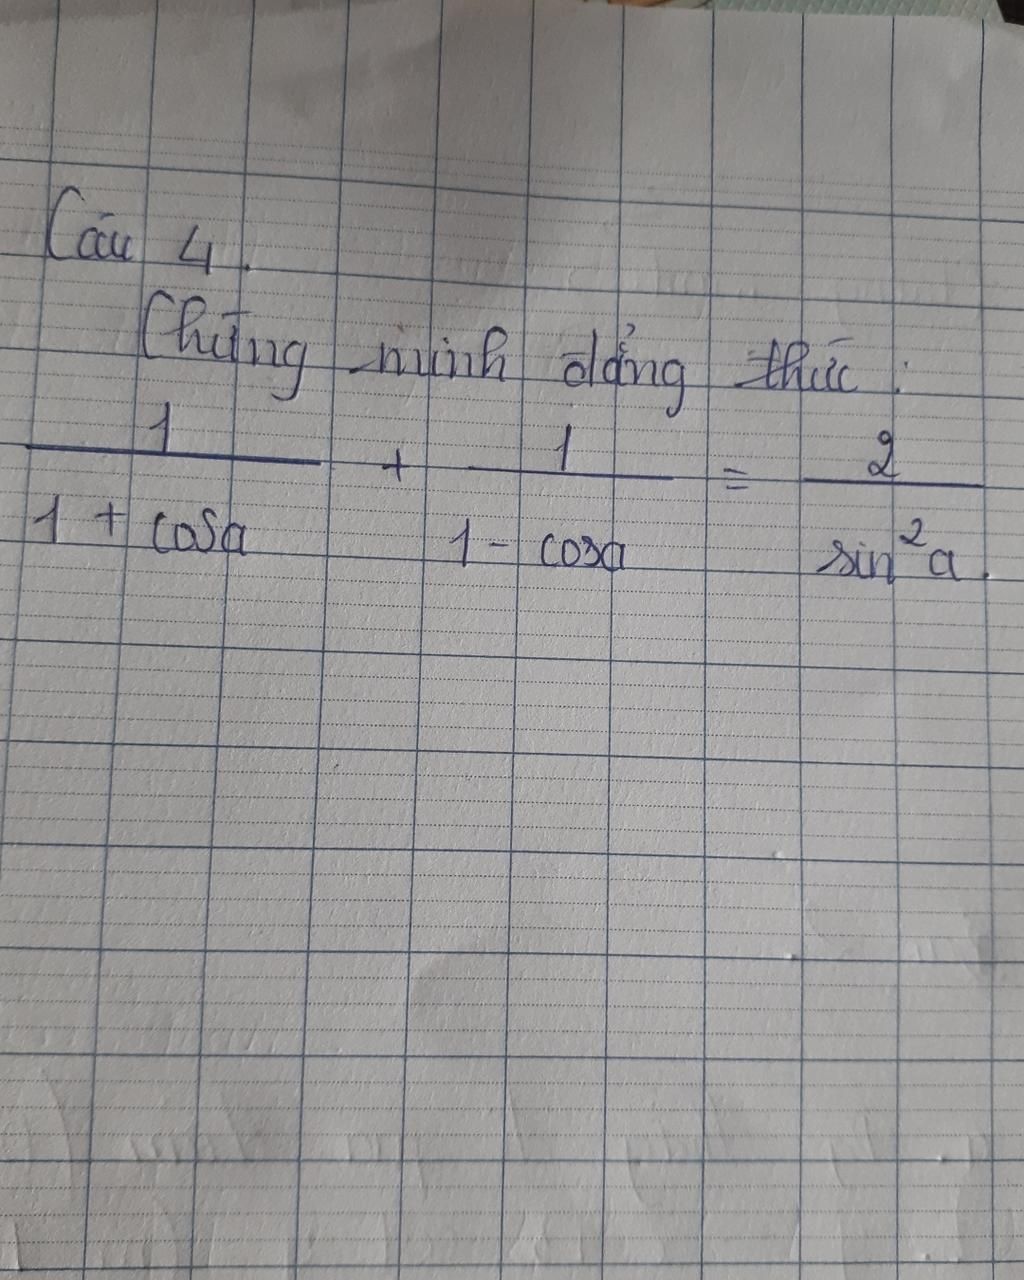 Câu 4.
Chứng minh đẳng thức :
1/(1 + cosa) + 1/(1 - cosa) = 2/sin²a.